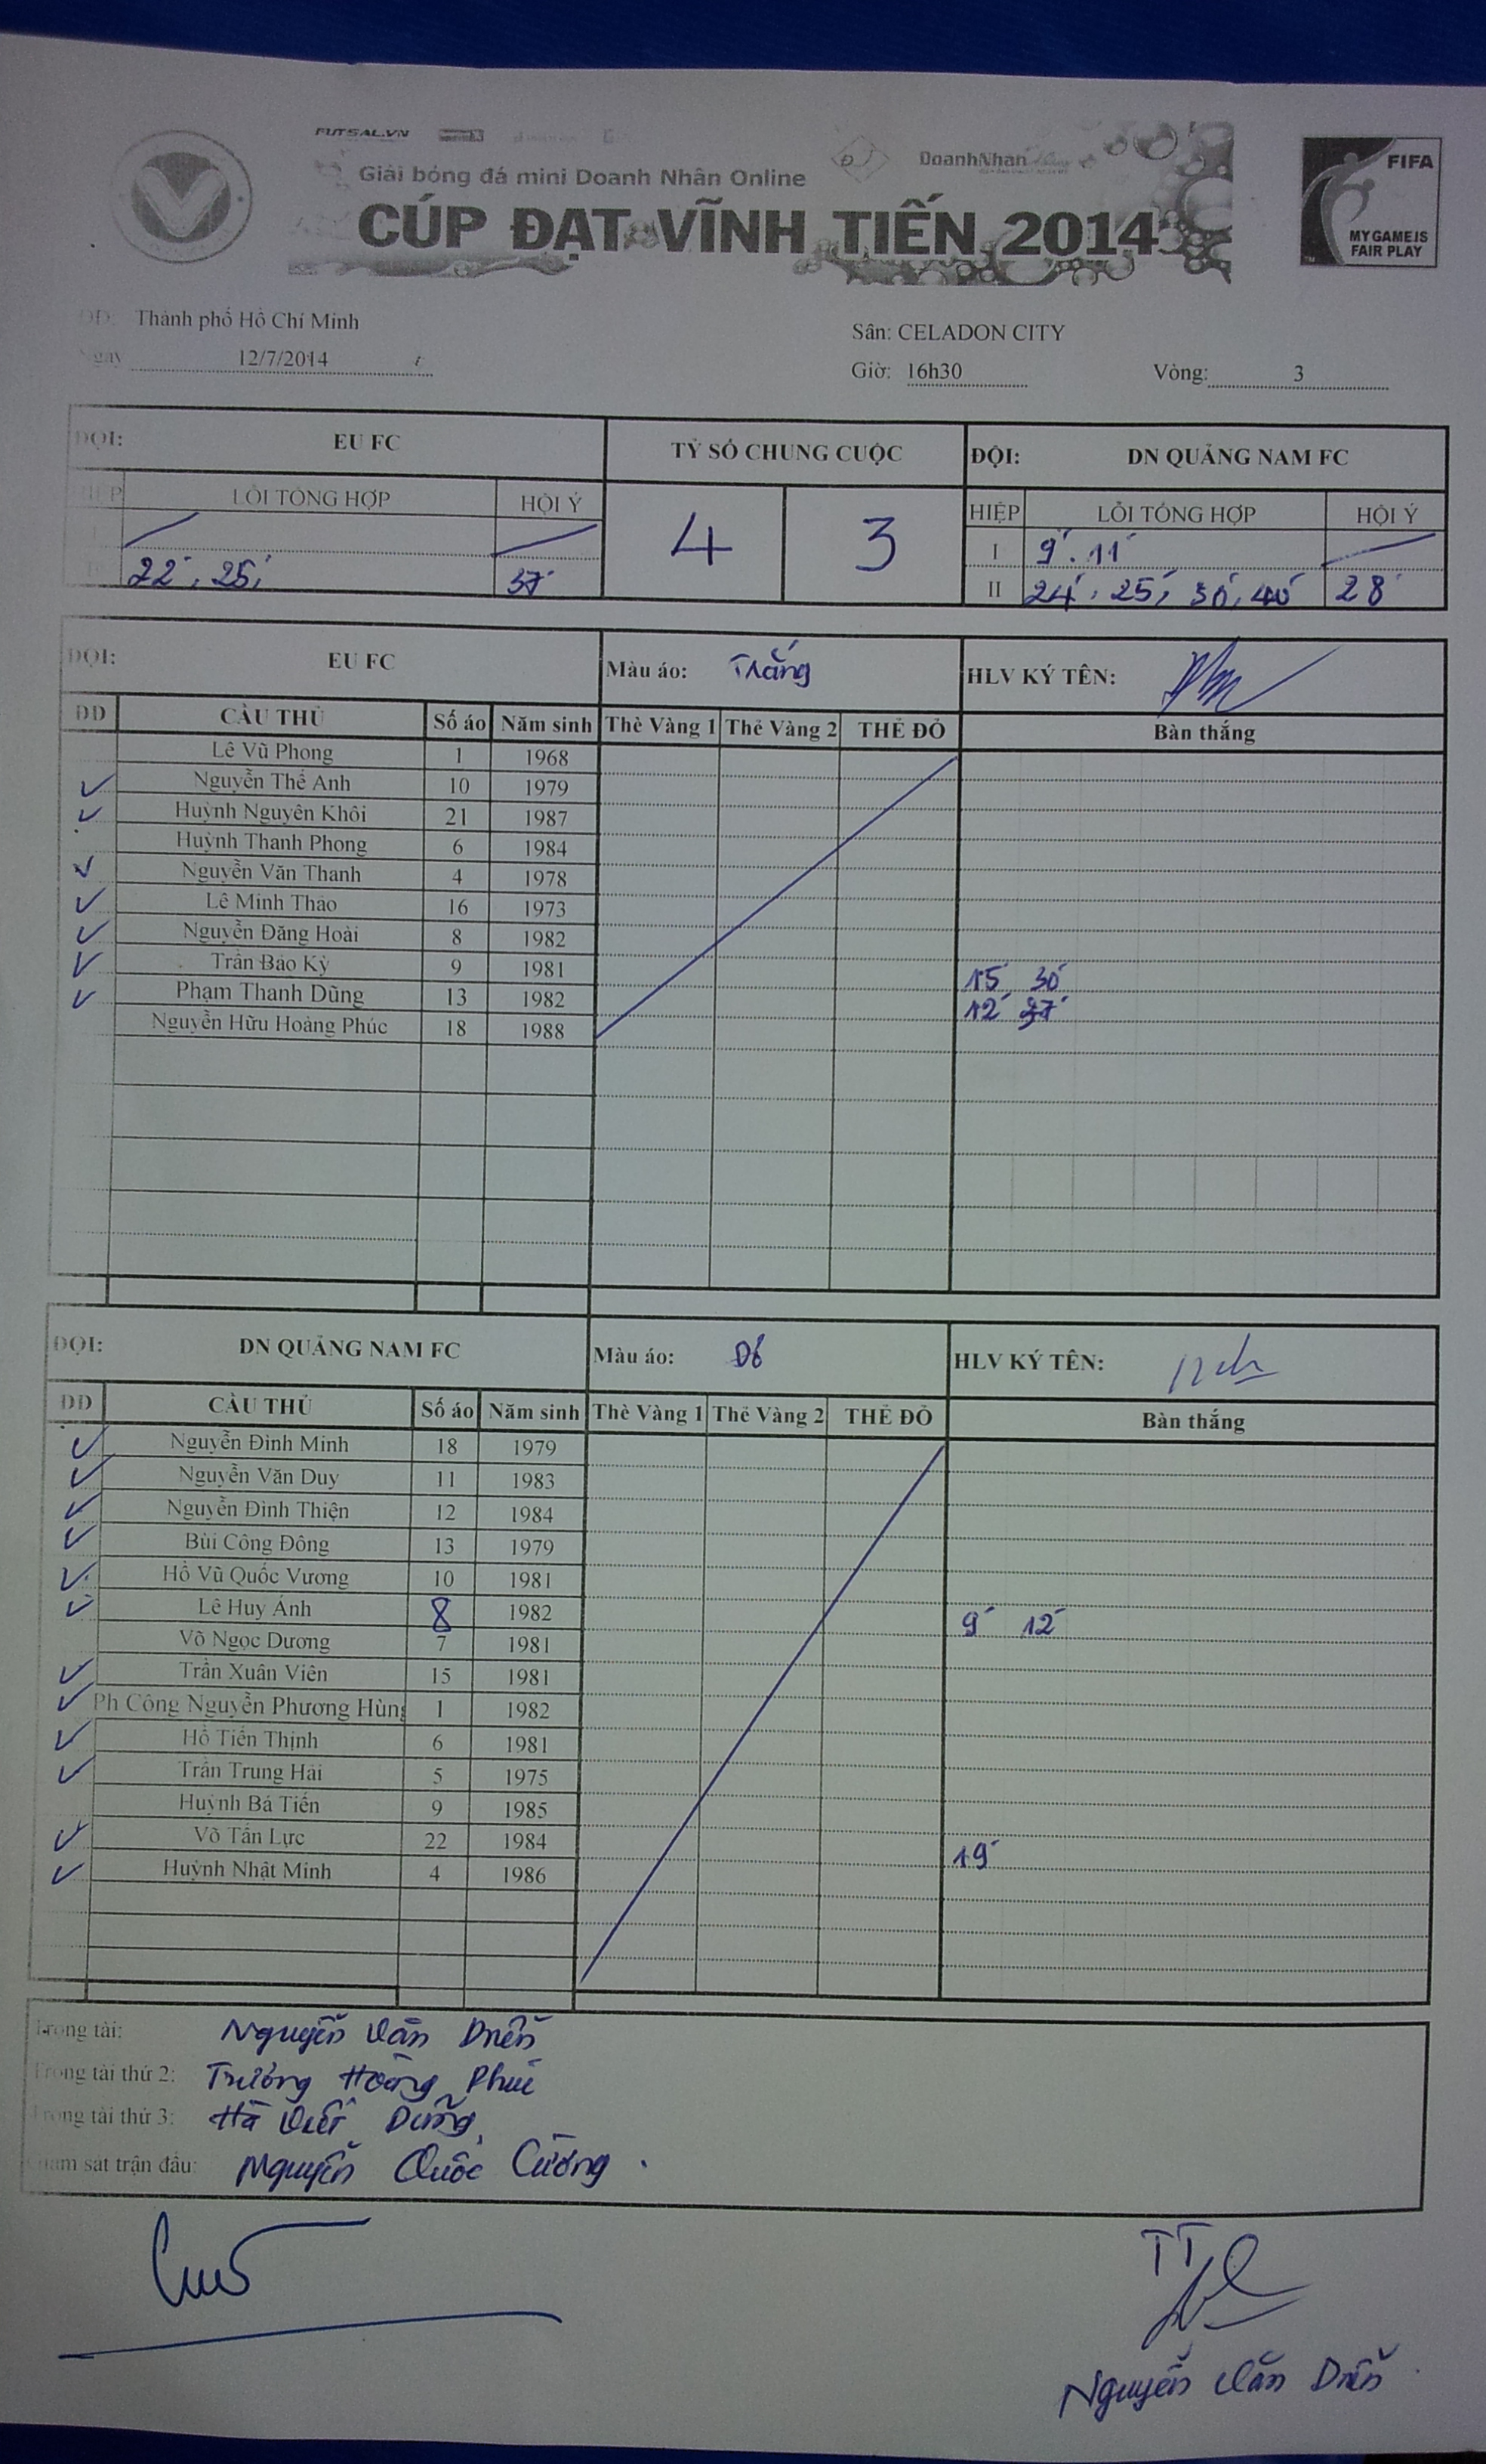 FUTSAL.VN
Giải bóng đá mini Doanh Nhân Online
DoanhNhan
CÚP ĐẠT VĨNH TIẾN 2014
FIFA
MY GAME IS
FAIR PLAY
ĐĐ: Thành phố Hồ Chí Minh
Sân: CELADON CITY
Ngày 12/7/2014
Giờ: 16h30 Vòng: 3
ĐỘI: EU FC TỶ SỐ CHUNG CUỘC ĐỘI: DN QUẢNG NAM FC
HIỆP LỖI TỔNG HỢP HỘI Ý 4 3 HIỆP LỖI TỔNG HỢP HỘI Ý
I 9' . 11'
22', 25' 37' II 24', 25', 30', 40' 28'
ĐỘI: EU FC Màu áo: Trắng HLV KÝ TÊN:
ĐD CẦU THỦ Số áo Năm sinh Thẻ Vàng 1 Thẻ Vàng 2 THẺ ĐỎ Bàn thắng
Lê Vũ Phong 1 1968
Nguyễn Thế Anh 10 1979
Huỳnh Nguyên Khôi 21 1987
Huỳnh Thanh Phong 6 1984
Nguyễn Văn Thanh 4 1978
Lê Minh Thảo 16 1973
Nguyễn Đăng Hoài 8 1982
Trần Bảo Kỳ 9 1981 15' 30'
Phạm Thanh Dũng 13 1982 12' 37'
Nguyễn Hữu Hoàng Phúc 18 1988
ĐỘI: DN QUẢNG NAM FC Màu áo: Đỏ HLV KÝ TÊN:
ĐD CẦU THỦ Số áo Năm sinh Thẻ Vàng 1 Thẻ Vàng 2 THẺ ĐỎ Bàn thắng
Nguyễn Đình Minh 18 1979
Nguyễn Văn Duy 11 1983
Nguyễn Đình Thiện 12 1984
Bùi Công Đông 13 1979
Hồ Vũ Quốc Vương 10 1981
Lê Huy Ánh 8 1982 9' 12'
Võ Ngọc Dương 7 1981
Trần Xuân Viên 15 1981
Ph Công Nguyễn Phương Hùng 1 1982
Hồ Tiến Thịnh 6 1981
Trần Trung Hải 5 1975
Huỳnh Bá Tiến 9 1985
Võ Tấn Lực 22 1984 19'
Huỳnh Nhật Minh 4 1986
Trọng tài: Nguyễn Văn Diễn
Trọng tài thứ 2: Trương Hoàng Phúc
Trọng tài thứ 3: Hà Việt Dũng
Giám sát trận đấu: Nguyễn Quốc Cường.
TT
Nguyễn Văn Diễn